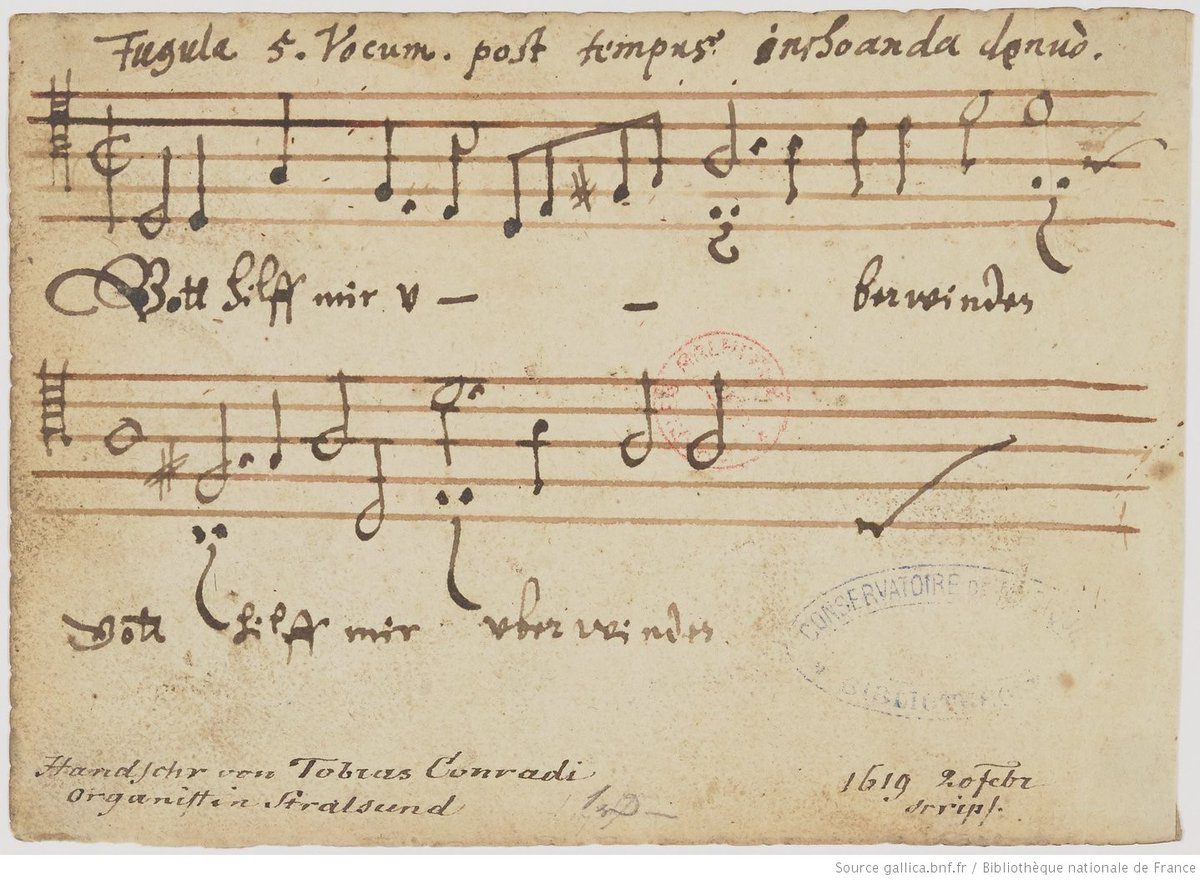 Fugula 5. Vocum. post tempus inchoanda denuò.
Gott hilff mir v - - berwinden
Gott hilff mir vberwinden
CONSERVATOIRE DE MUSIQUE
* BIBLIOTHEQUE
Handschr von Tobias Conradi
Organist in Stralsund
1619 20 Febr
scrips.
Source gallica.bnf.fr / Bibliothèque nationale de France